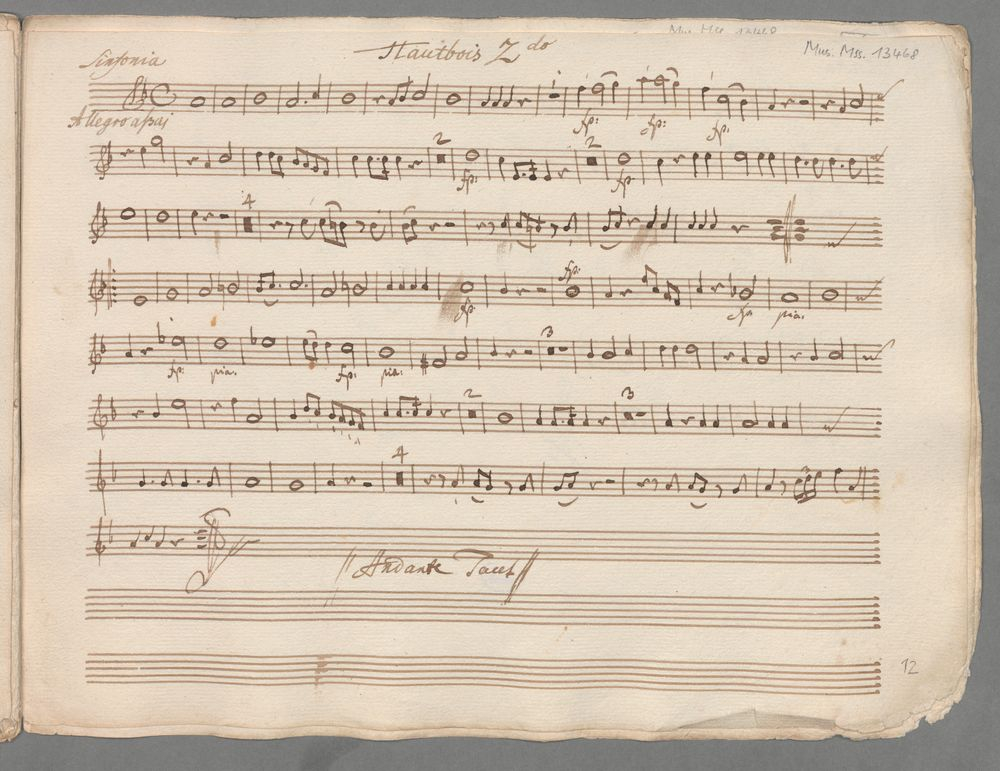 Mus. Mss. 13468
Sinfonia Hautbois 2do Mus. Mss. 13468
Allegro aſsai
fp: fp: fp:
2 2
fp: fp:
4
fp:
fp: fp pia.
3
fp: pia. fp: pia.
2 3
4
Andante Tacet
12